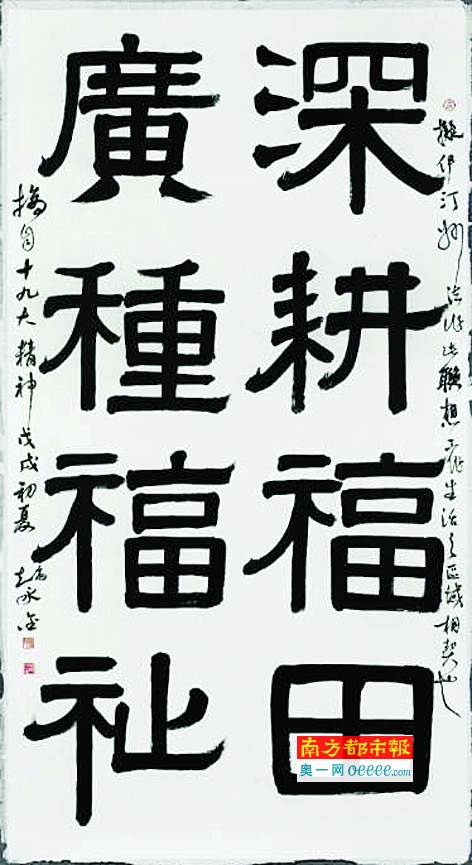 擬伊汀州法聯想工作生活之區域相契也
深耕福田
廣種福祉
摘自十九大精神戊戌初夏
南方都市報
奥一网 oeeee.com